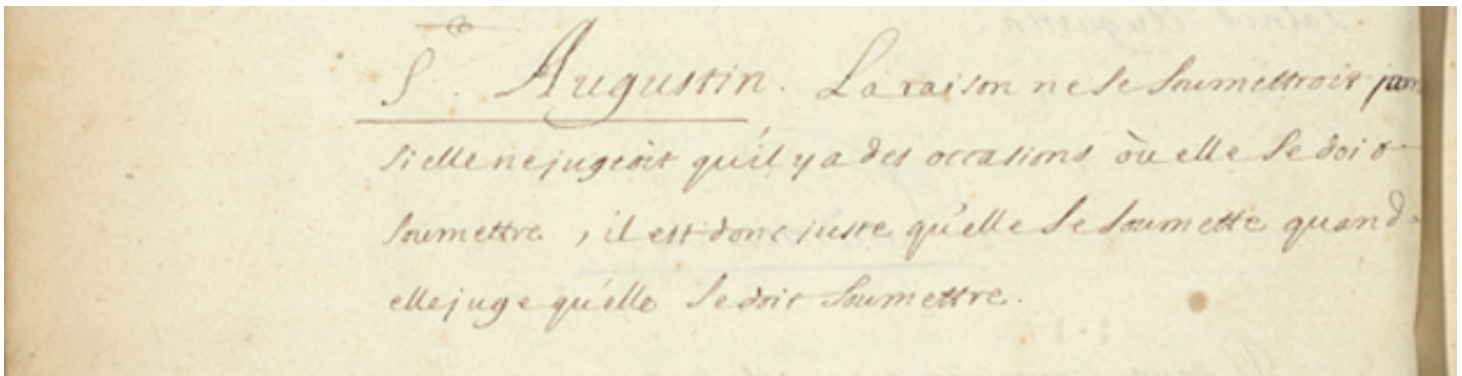 S.t Augustin. La raison ne se soumettroit jam
si elle ne jugeoit qu'il y a des occasions où elle se doit
soumettre, il est donc juste qu'elle se soumette quand
elle juge qu'elle se doit soumettre.